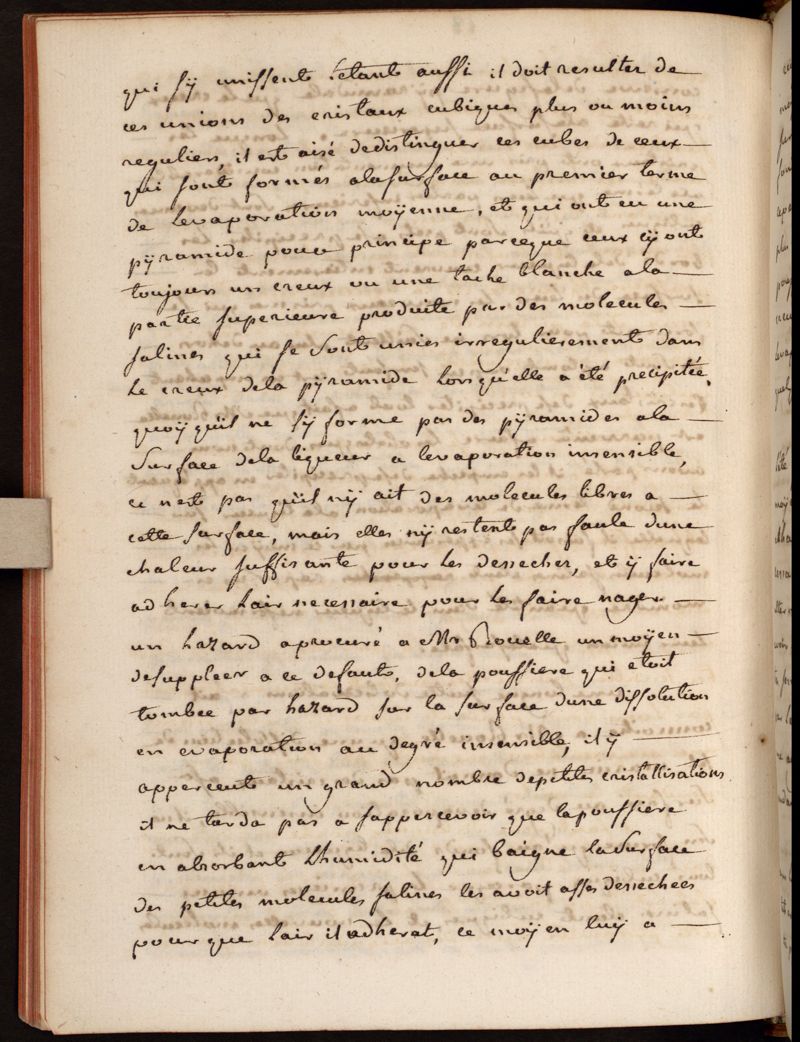 qui s'y unissent l'etant aussi il doit resulter de
ces unions des cristaux cubiques plus ou moins
reguliers, il est aisé dedistinguer ces cubes de ceux
qui sont formés alasurface au premier terme
de levaporation moÿenne, et qui ont eu une
pÿramide pour principe parceque ceux cÿ ont
toujours un creux ou une tache blanche ala
partie superieure produite par des molecules
salines qui se sont unies irregulierement dans
le creux dela pÿramide lorsqu'elle a été precipitée,
quoÿ qu'il ne s'ÿ forme pas des pÿramides ala
surface dela liqueur a levaporation insensible,
ce nest pas qu'il nÿ ait des molecules libres a
cette surface, mais elles nÿ restent pas faute dune
chaleur suffisante pour les dessecher, et ÿ faire
adherer lair necessaire pour les faire nager
un hazard aprocuré a Mr Rouelle un moÿen
desuppleer a ce defaut, dela poussiere qui etoit
tombée par hazard sur la surface dune dissolution
en evaporation au degré insensible, il ÿ
appercent un grand nombre depetites cristallisations
il ne tarda pas a sappercevoir que lapoussiere
en absorbant lhumidité qui baigne la surface
des petites molecules salines les avoit asses dessechées
pour que lair il adherat, ce moÿen luÿ a